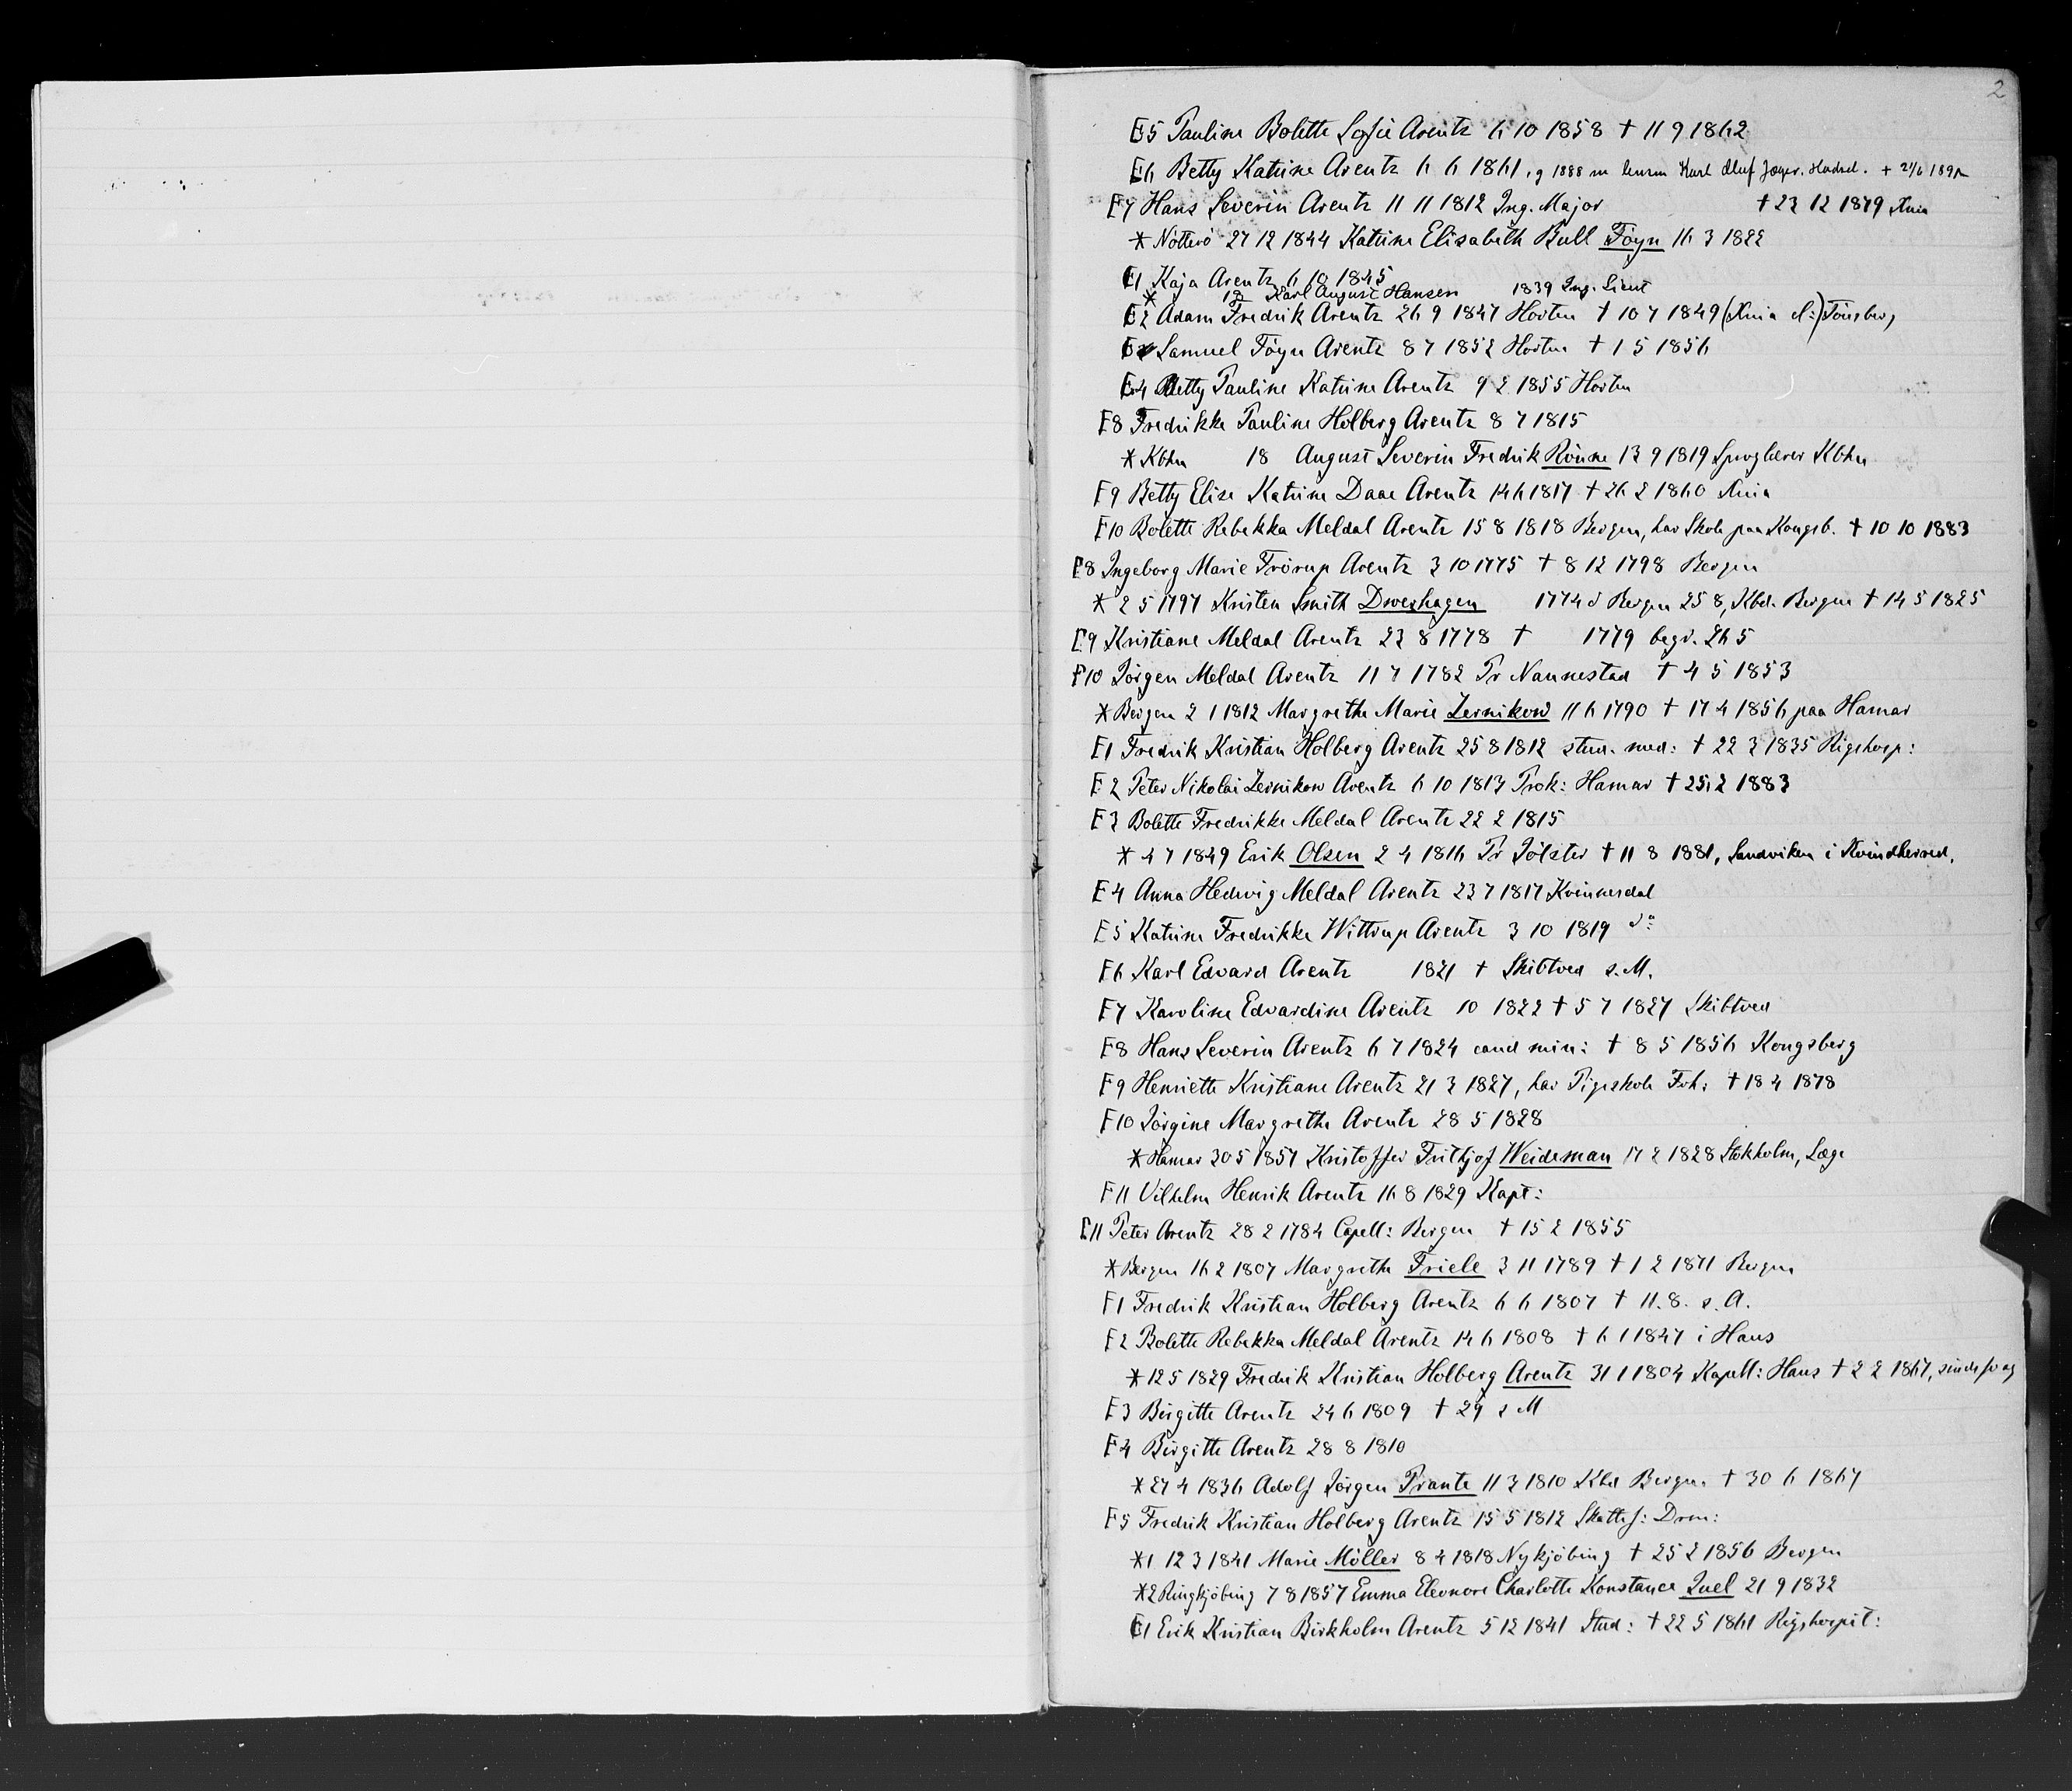 2
E5 Pauline Bolette Sofie Arentz 6 10 1858 † 11 9 1862
E6 Betty Katrine Arentz 6 6 1861, g 1888 m Karl Oluf Jæger. Hadsel. +
E7 Hans Severin Arentz 11 11 1812 Ing. Major † 23 12 1879 Xnia
* Nötterö 27 12 1844 Katrine Elisabeth Bull Föyn 16 3 1822
E1 Kaja Arentz 6 10 1845
* 18 Karl August Hansen 1839 Ing. Lieut
E2 Adam Fredrik Arentz 26 9 1847 Horten † 10 7 1849 (Xnia el:) Tönsberg
E3 Samuel Föyn Arentz 8 7 1852 Horten † 1 5 1856
E4 Betty Pauline Katrine Arentz 9 2 1855 Horten
E8 Fredrikke Pauline Holberg Arentz 8 7 1815
* Kbhn 18 August Severin Fredrik Rönne 13 9 1819 Sproglærer Kbhn
E9 Betty Elise Katrine Daae Arentz 14 6 1817 † 26 2 1860 Xnia
E10 Bolette Rebekka Meldal Arentz 15 8 1818 Bergen, har Skole paa Kongsb. † 10 10 1883
E8 Ingeborg Marie Frörup Arentz 3 10 1775 † 8 12 1798 Bergen
* 2 5 1797 Kristen Smith Dwerhagen 1774 d Bergen 25 8, Kbd. Bergen † 14 5 1825
E9 Kristiane Meldal Arentz 23 8 1778 † 1779 begr. 26 5
E10 Jörgen Meldal Arentz 11 7 1782 Pr Nannestad † 4 5 1853
* Bergen 2 1 1812 Margrethe Marie Zernikow 11 6 1790 † 17 4 1856 paa Hamar
E1 Fredrik Kristian Holberg Arentz 25 8 1812 stud. med: † 22 3 1835 Rigshosp:
E2 Peter Nikolai Zernikow Arentz 6 10 1813 Prok: Hamar † 25,2 1883
E3 Bolette Fredrikke Meldal Arentz 22 2 1815
* 4 7 1849 Erik Olsen 2 4 1816 Pr Jölster † 11 8 1881, Sandviken i Kvindherred,
E4 Anna Hedwig Meldal Arentz 23 7 1817 Kvinnesdal
E5 Katrine Fredrikke Wittrup Arentz 3 10 1819 do:
E6 Karl Edvard Arentz 1821 † Skibtved s. M.
E7 Karoline Edvardine Arentz 10 1822 † 5 7 1827 Skibtved
E8 Hans Severin Arentz 6 7 1824 cand min: † 8 5 1856 Kongsberg
E9 Henriette Kristiane Arentz 21 3 1827, har Pigeskole Frh: † 18 4 1878
E10 Jörgine Margrethe Arentz 28 5 1828
* Hamar 30 5 1857 Kristoffer Frithjof Weideman 17 2 1828 Stokholm, Læge
E11 Vilhelm Henrik Arentz 16 8 1829 Kapt:
E11 Peter Arentz 28 2 1784 Capell: Bergen † 15 2 1855
* Bergen 16 2 1807 Margrethe Friele 3 11 1789 † 1 2 1871 Bergen
E1 Fredrik Kristian Holberg Arentz 6 6 1807 † 11. 8. s. A.
E2 Bolette Rebekka Meldal Arentz 14 6 1808 † 6 1 1847 i Haus
* 12 5 1829 Fredrik Kristian Holberg Arentz 31 1 1804 Kapell: Haus † 2 2 1867,
E3 Birgitte Arentz 24 6 1809 † 29 s M
E4 Birgitte Arentz 28 8 1810
* 27 4 1836 Adolf Jörgen Prante 11 3 1810 Kbd Bergen. † 30 6 1867
E5 Fredrik Kristian Holberg Arentz 15 5 1812 Skattef: Drm:
*1 12 3 1841 Marie Möller 8 4 1818 Nykjöbing † 25 2 1856 Bergen
*2 Ringkjöbing 7 8 1857 Emma Eleonore Charlotte Konstance Juel 21 9 1832
E1 Erik Kristian Birkholm Arentz 5 12 1841 Stud: † 22 5 1861 Rigshospit: